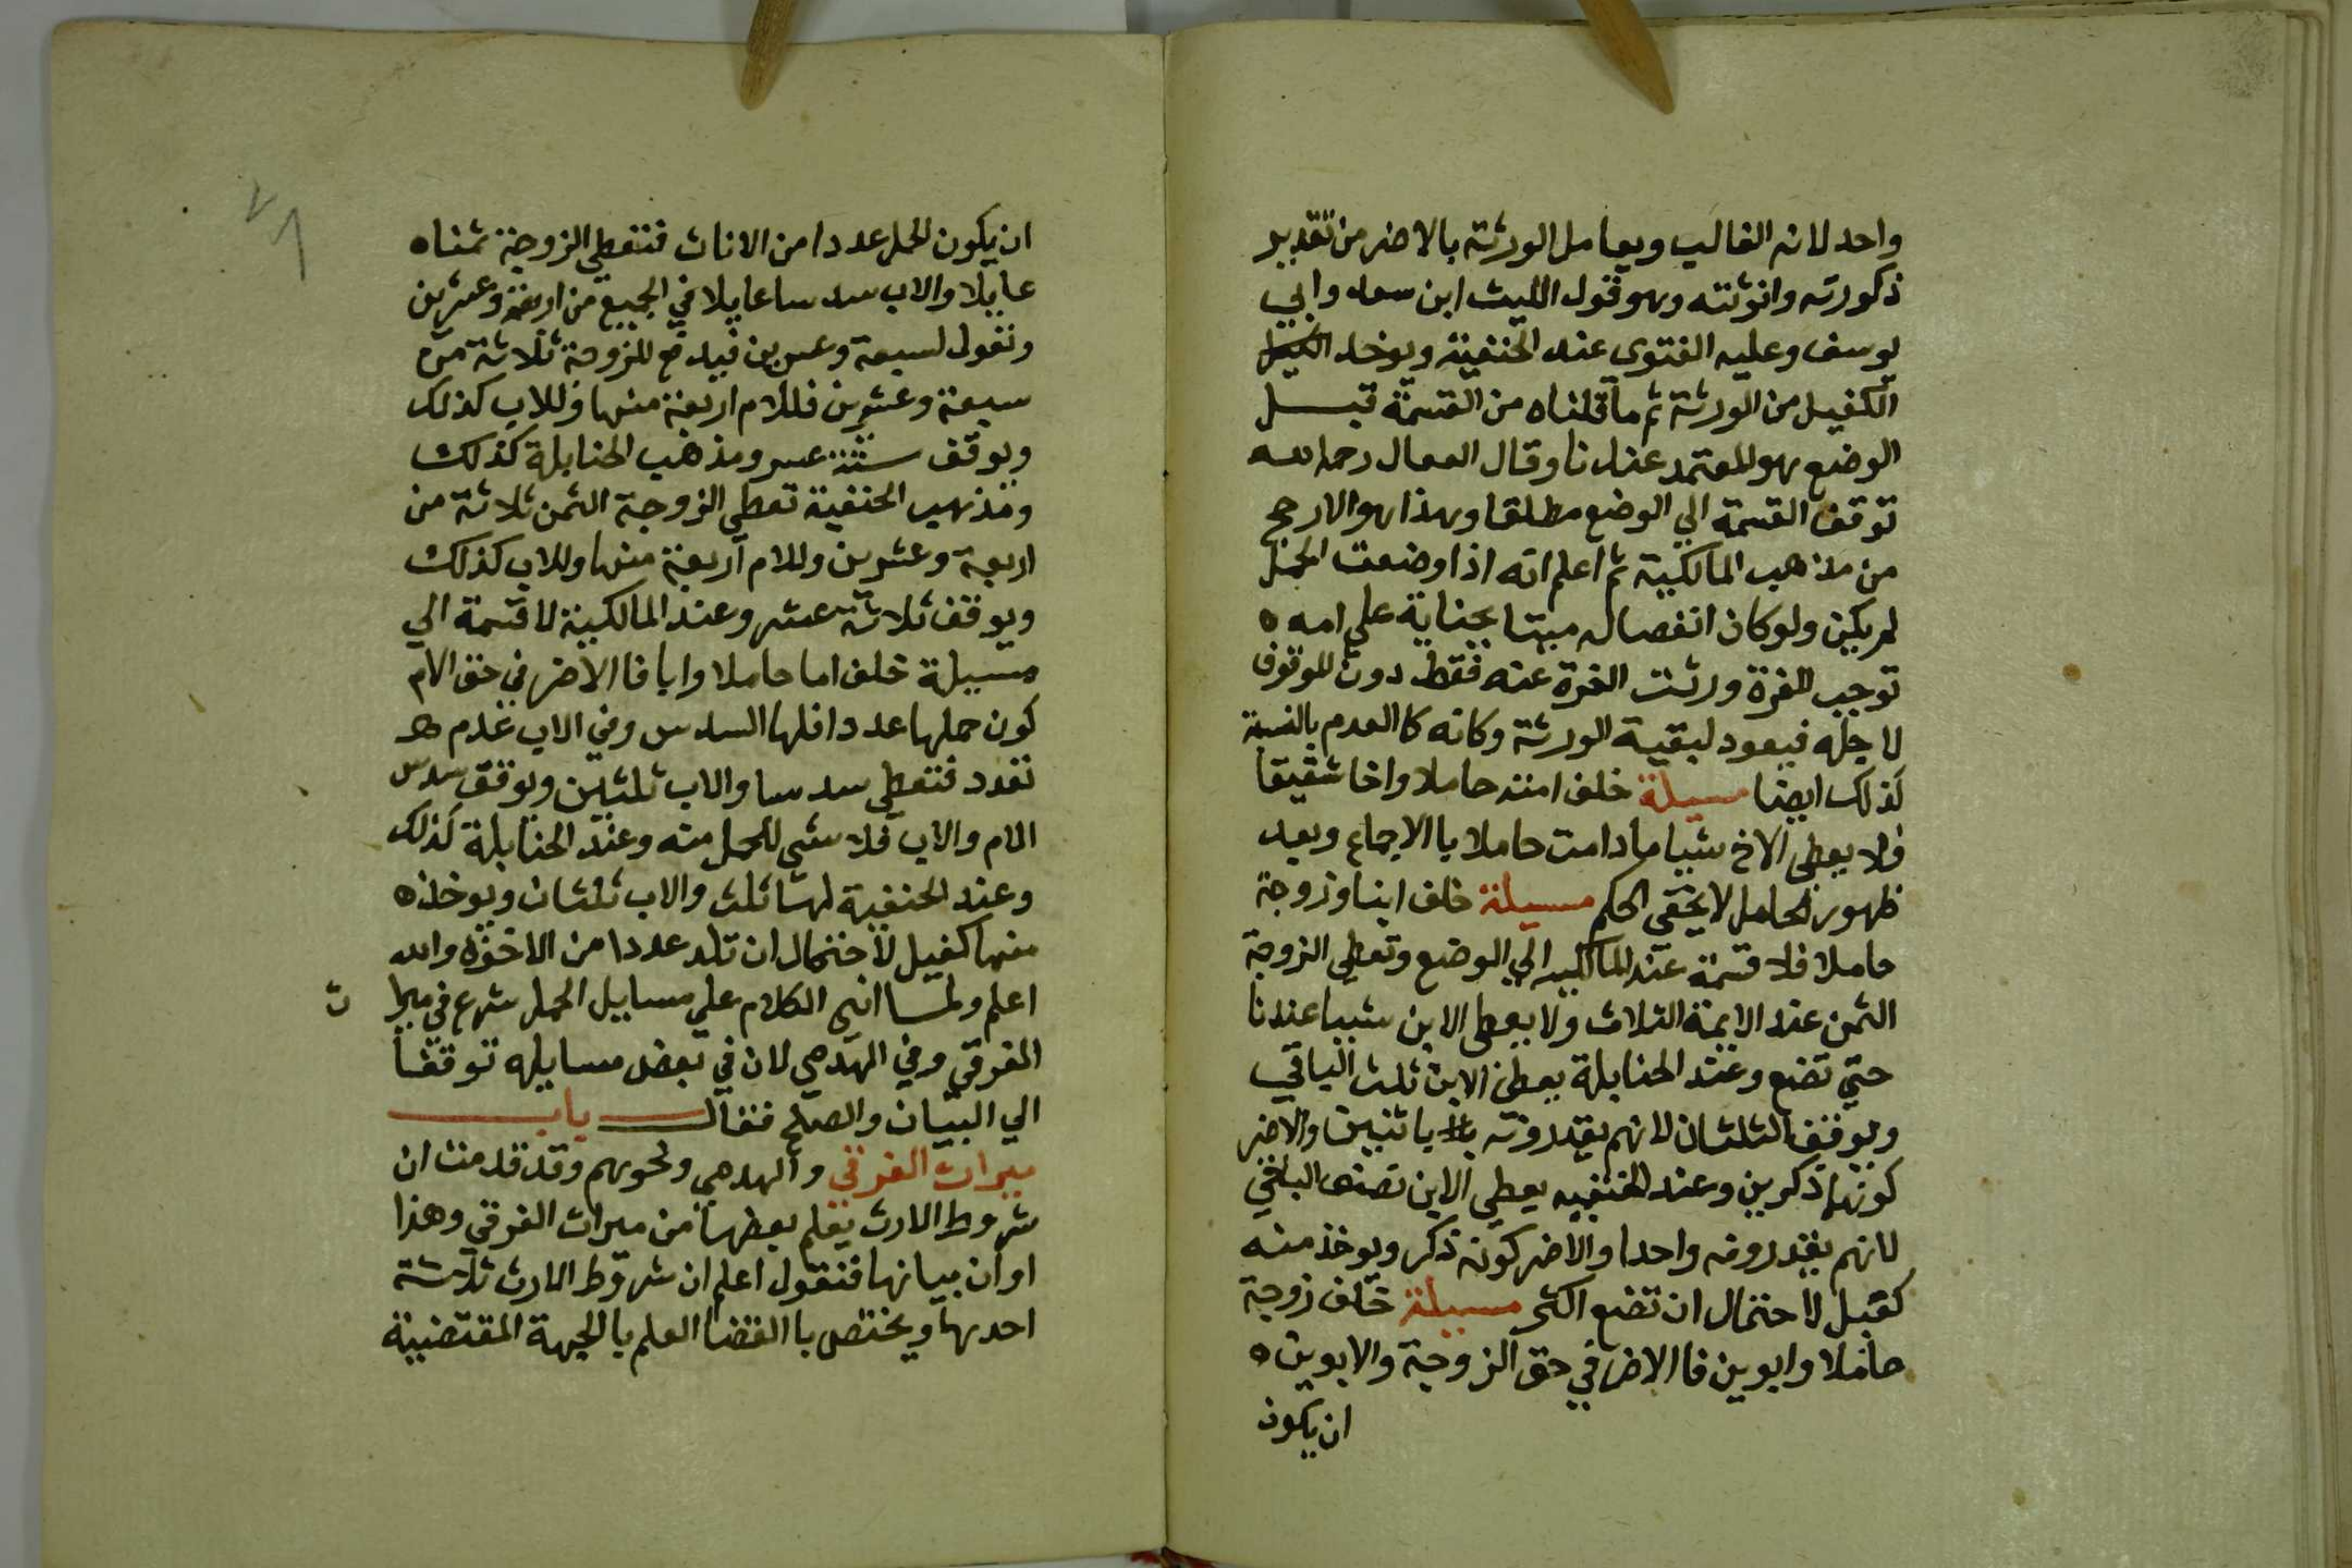 واحد لانه الغالب ويعامل الورثة بالاضر من تقدير
ذكورته وانوثته وهو قول الليث ابن سعد وابي
يوسف وعليه الفتوى عند الحنفية ويوخد
الكفيل من الورثة ثم ما قلناه من القسمة قبل
الوضع هو المعتمد عندنا وقال القفال رحمه الله
توقف القسمة الي الوضع مطلقا وهذا هو الارجح
من مذهب المالكية ثم اعلم انه اذا وضعت الحمل
لم يكن ولو كان انفصاله ميتا بجناية على امه
توجب الغرة ورثت الغرة عنه فقط دون الموقوف
لاجله فيعود لبقية الورثة وكانه كالعدم بالنسبة
لذلك ايضا مسيلة خلف امته حاملا واخا شقيقا
فلا يعطى الاخ شيا ما دامت حاملا باالاجماع وبعد
ظهور الحامل لا يخفى الحكم مسيلة خلف ابنا وزوجة
حاملا فلا قسمة عند المالكيه الي الوضع وتعطى الزوجة
الثمن عند الايمة الثلاث ولا يعطى الابن شييا عندنا
حتي تضع وعند الحنابلة يعطى الابن ثلث الباقي
ويوقف الثلثان لانهم يقدرونه باثنين والاضر
كونهما ذكرين وعند الحنفيه يعطي الابن نصف الباقي
لانهم يقدرونه واحدا والاضر كونه ذكر ويوخذ منه
كفيل لاحتمال ان تضع اكثر مسيلة خلف زوجة
حاملا وابوين فاالاضر في حق الزوجة والابوين
ان يكون
ان يكون الحمل عددا من الاناث فتعطي الزوجة ثمنا
عايلا والاب سدسا عايلا في الجميع من اربعة وعشرين
وتعول لسبعة وعشرين فيدفع للزوجة ثلاثة من
سبعة وعشرين فللام اربعة منها وللاب كذلك
ويوقف ستة عشر ومذهب الحنابلة كذلك
ومذهب الحنفية تعطى الزوجة الثمن ثلاثة من
اربعة وعشرين وللام اربعة منها وللاب كذلك
ويوقف ثلاثة عشر وعند المالكية لا قسمة الي
مسيلة خلف اما حاملا وابا فا الاضر في حق الام
كون حملها عددا فلها السدس وفي الاب عدم
تعدد فتعطي سدسا والاب ثلثين ويوقف سدس
الام والاب فلا شي للحمل منه وعند الحنابلة كذلك
وعند الحنفية لها ثلث والاب ثلثان ويوخذ
منها كفيل لاحتمال ان تلد عددا من الاخوة والله
اعلم ولما انهي الكلام علي مسايل الحمل شرع في ميرا ث
الغرقي وفي الهدمي لان في بعض مسايله توقفا
الي البيان والصلح فقال باب
ميراث الغرقي والهدمي ونحوهم وقد قدمت ان
شروط الارث يعلم بعضها من ميراث الغرقي وهذا
اوان بيانها فنقول اعلم ان شروط الارث ثلاثة
احدها ويختص باالقضا العلم بالجهة المقتضية